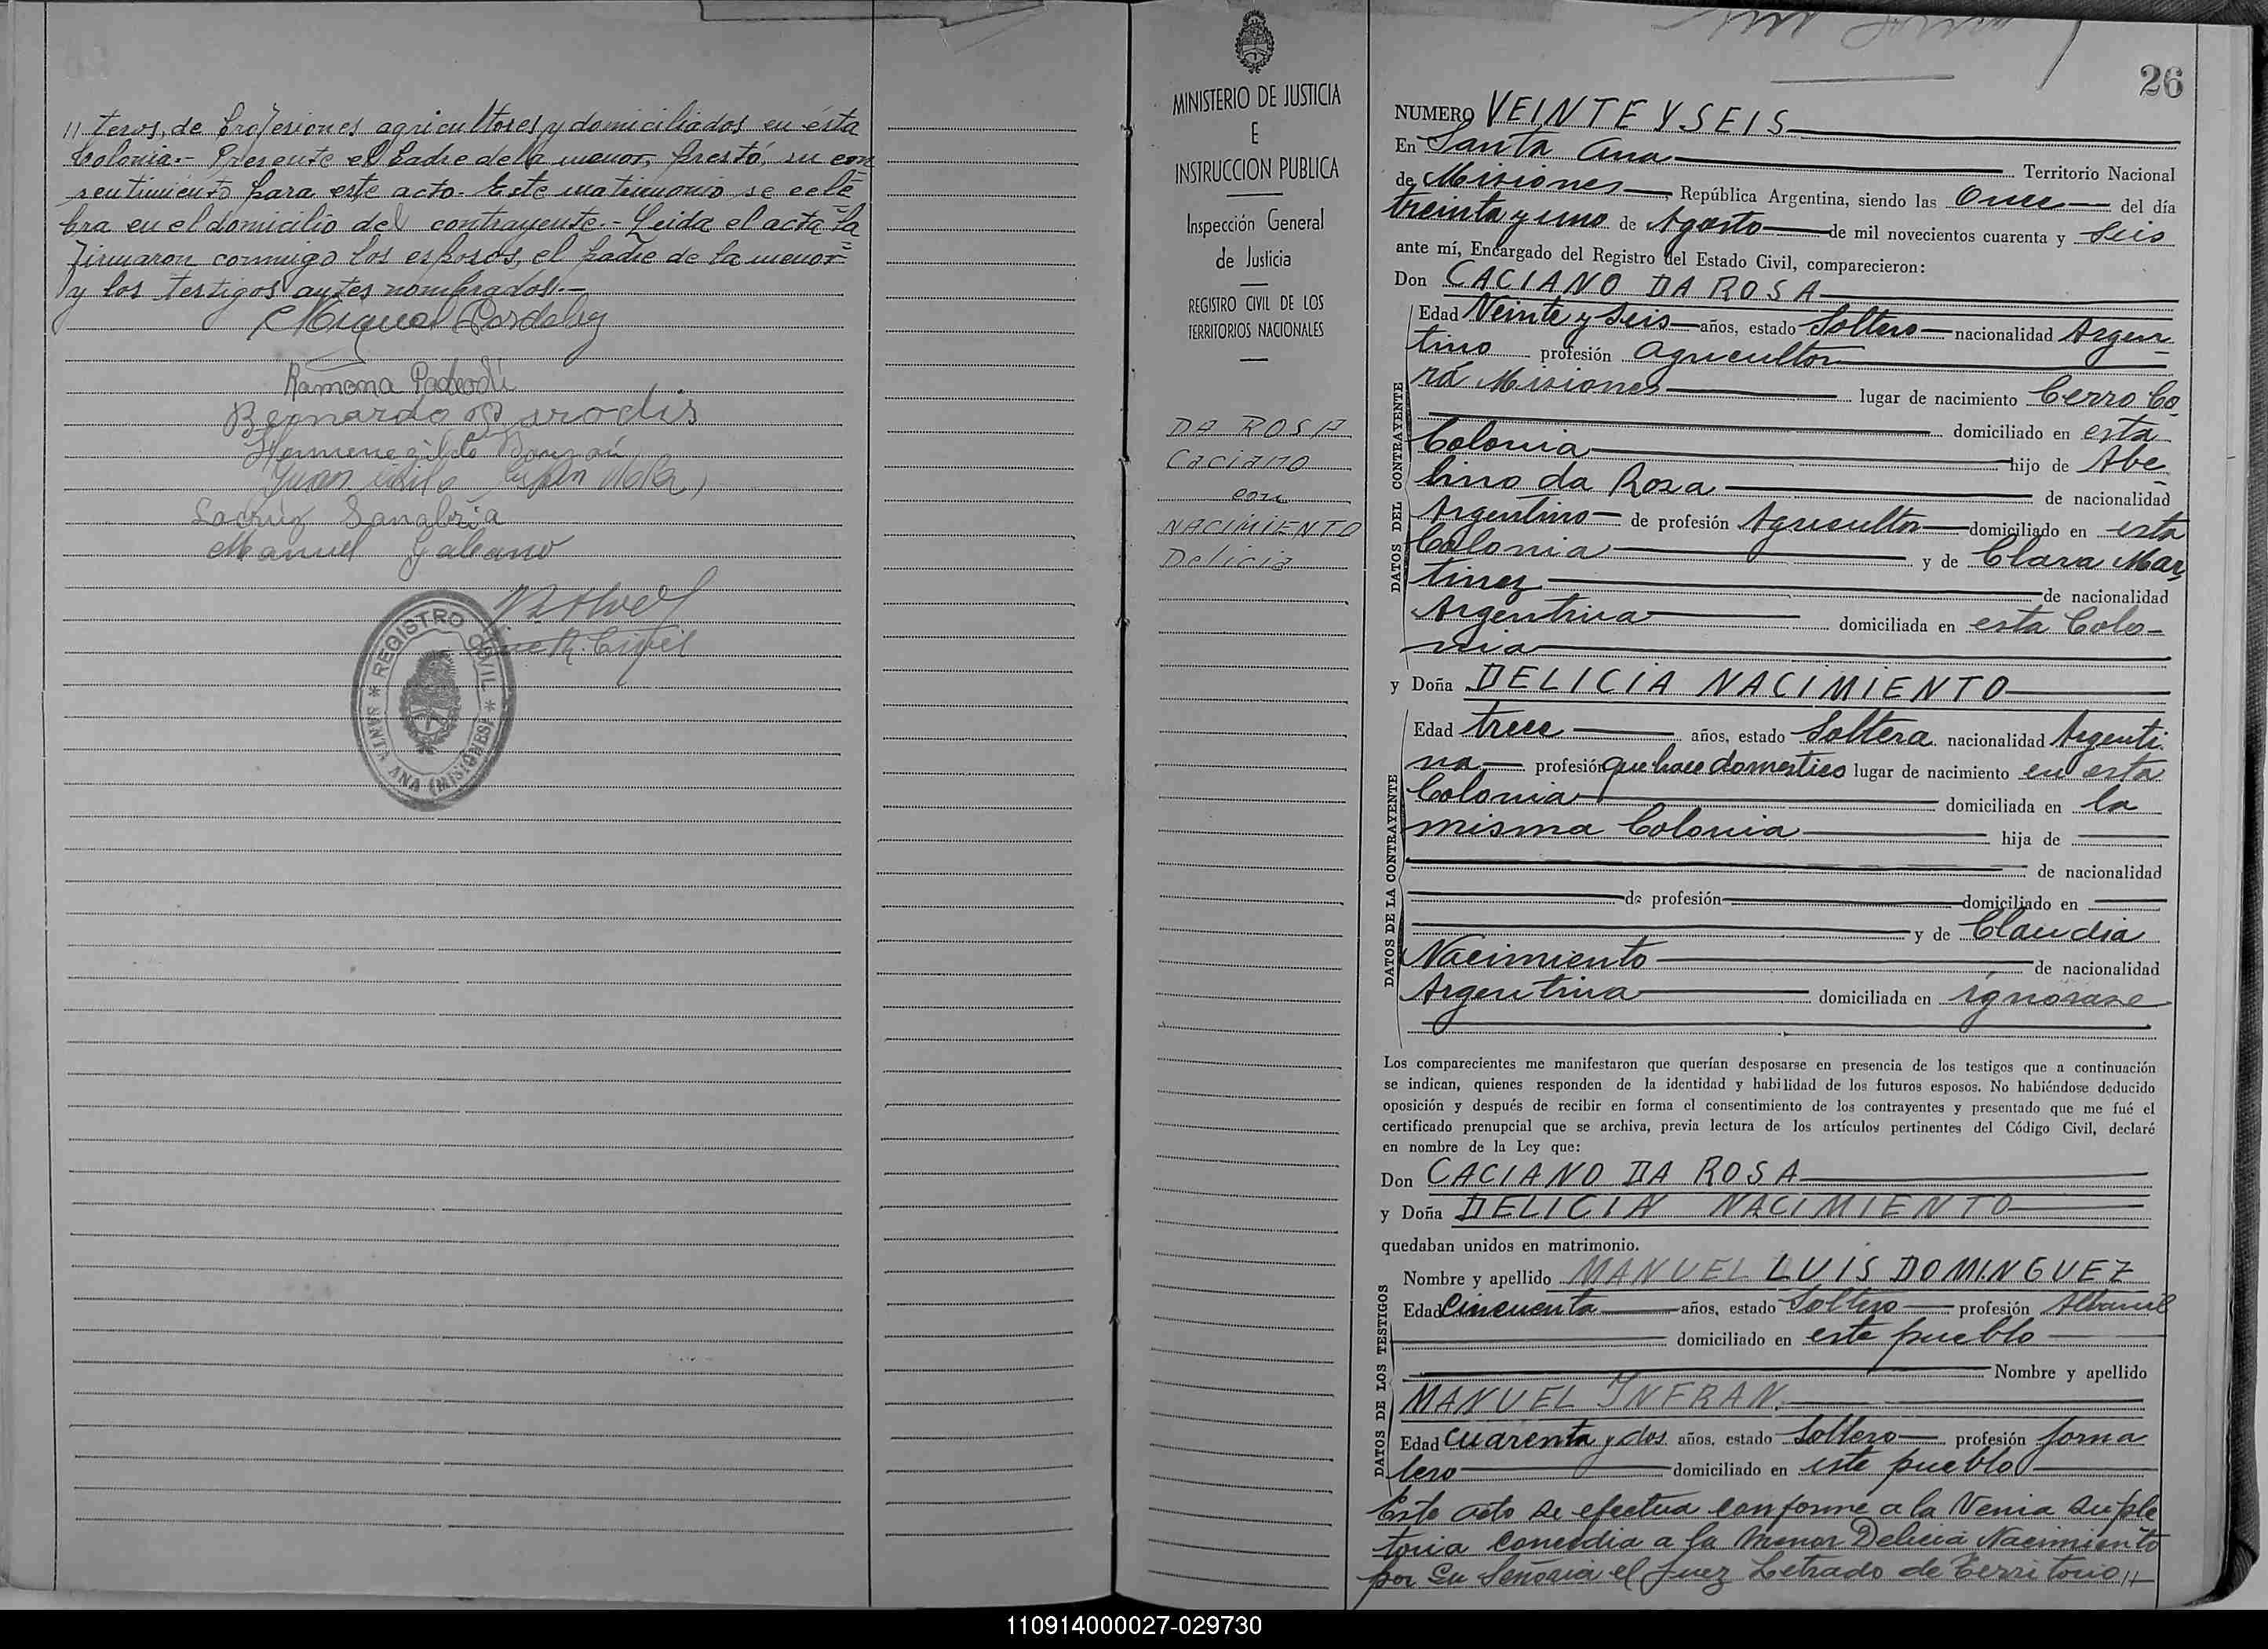 // teros, de profesiones agricultores y domiciliados en ésta
Colonia.- Presente el Padre de la menor, prestó, su con
sentimiento para este acto. Este matrimonio se cele
bra en el domicilio del contrayente.- Leida el acta la
firmaron conmigo los esposos, el padre de la menor
y los testigos antes nombrados.-
Miguel
Ramona
Bernardo
Hermenegildo
Juan
Lacruz Sanabria
Manuel Galeano
R. Civil
* REGISTRO CIVIL *
SANTA ANA (MISIONES)
MINISTERIO DE JUSTICIA
E
INSTRUCCION PUBLICA
Inspección General
de Justicia
REGISTRO CIVIL DE LOS
TERRITORIOS NACIONALES
DA ROSA
Caciano
con
NACIMIENTO
Delicia
26
NUMERO VEINTE Y SEIS
En Santa Ana Territorio Nacional
de Misiones, República Argentina, siendo las Once del día
treinta y uno de Agosto de mil novecientos cuarenta y Seis
ante mí, Encargado del Registro del Estado Civil, comparecieron:
Don CACIANO DA ROSA
DATOS DEL CONTRAYENTE
Edad Veinte y Seis años, estado Soltero nacionalidad Argen
tino profesión Agricultor
lugar de nacimiento Cerro Co
rá Misiones domiciliado en esta
Colonia hijo de Abe
lino da Rosa de nacionalidad
Argentino de profesión Agricultor domiciliado en esta
Colonia y de Clara Mar
tinez de nacionalidad
Argentina domiciliada en esta Colo-
nia
y Doña DELICIA NACIMIENTO
DATOS DE LA CONTRAYENTE
Edad trece años, estado Soltera nacionalidad Argenti
na profesión que hace domestico lugar de nacimiento en esta
Colonia domiciliada en la
misma Colonia hija de
de nacionalidad
de profesión domiciliado en
y de Claudia
Nacimiento de nacionalidad
Argentina domiciliada en ignorase
Los comparecientes me manifestaron que querían desposarse en presencia de los testigos que a continuación
se indican, quienes responden de la identidad y habilidad de los futuros esposos. No habiéndose deducido
oposición y después de recibir en forma el consentimiento de los contrayentes y presentado que me fué el
certificado prenupcial que se archiva, previa lectura de los artículos pertinentes del Código Civil, declaré
en nombre de la Ley que:
Don CACIANO DA ROSA
y Doña DELICIA NACIMIENTO
quedaban unidos en matrimonio.
DATOS DE LOS TESTIGOS
Nombre y apellido MANUEL LUIS DOMINGUEZ
Edad Cincuenta años, estado Soltero profesión Albanil
domiciliado en este pueblo
Nombre y apellido
MANUEL YNFRAN.
Edad cuarenta y dos años, estado Soltero profesión Jorna
lero domiciliado en este pueblo
Este acto se efectua conforme a la Venia suple
toria concedia a la menor Delicia Nacimiento
por Su Señoria el Juez Letrado de Territorio //
110914000027-029730